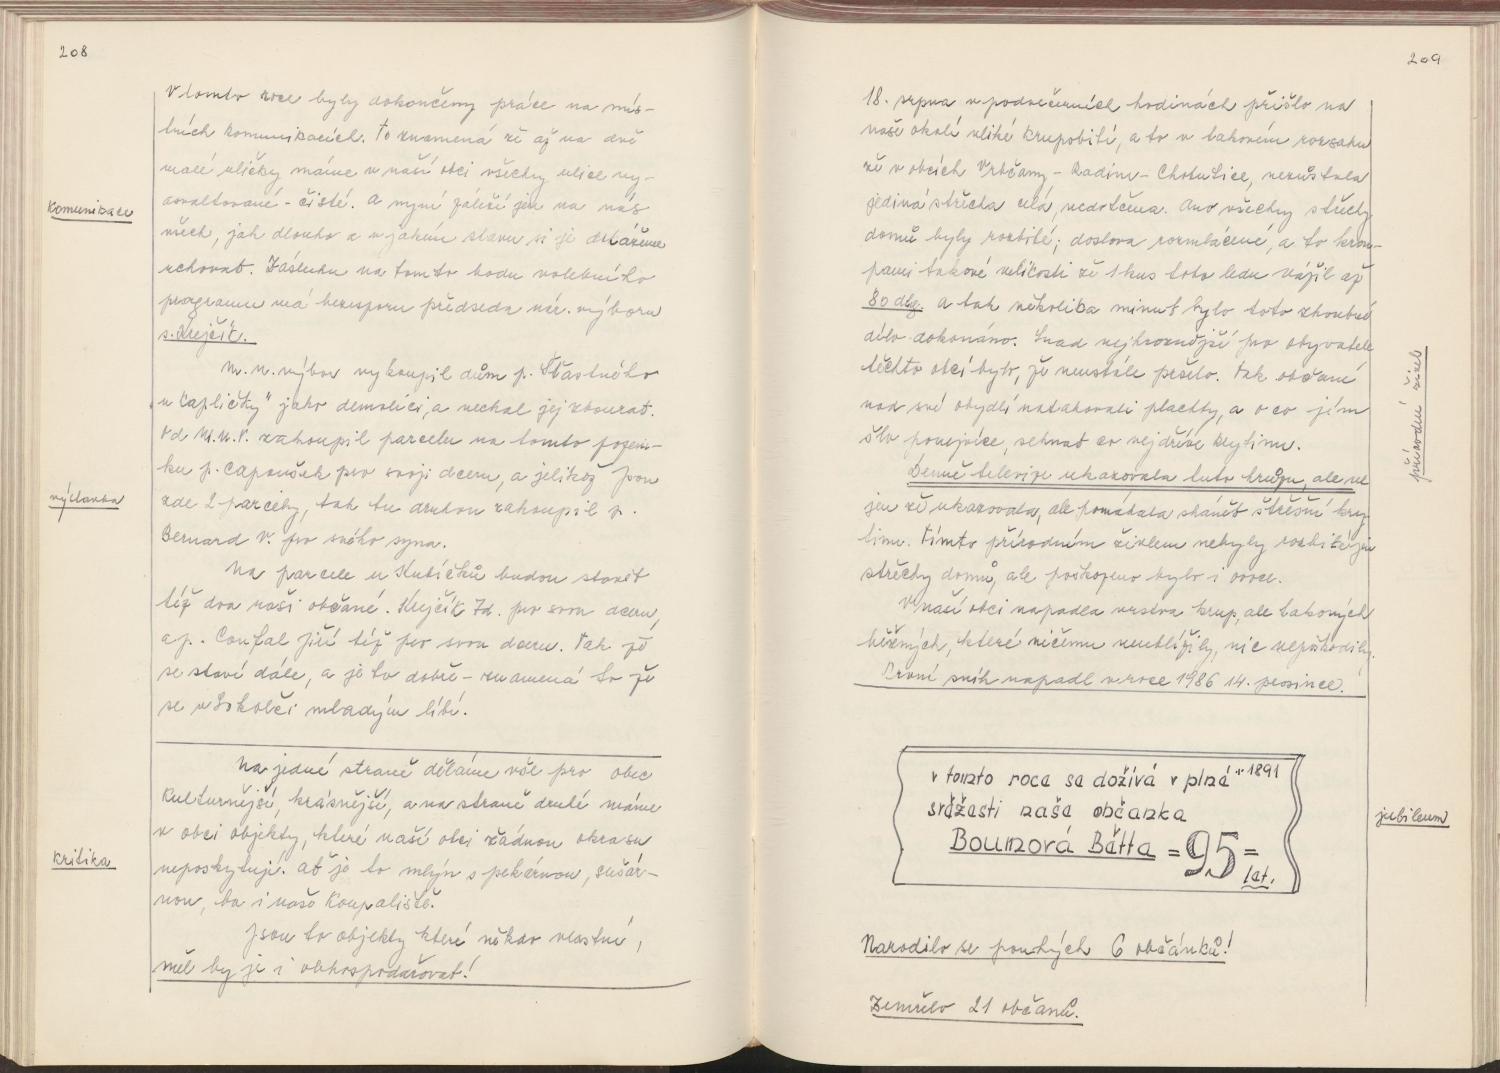 208
V tomto roce byly dokončeny práce na mís-
tních komunikacích. To znamená že až na dvě
malé uličky máme v naší obci všechny ulice vy-
asvaltované - čisté. A nyní záleží jen na nás
komunikace
všech, jak dlouho a v jakém stavu si je dokážeme
uchovat. Zásluhu na tomto bodu volebního
programu má bezesporu předseda nár. výboru
s. Krejčík.
M. n. výbor vykoupil dům p. Šťastného
u Capličky" jako demolici, a nechal jej zbourat.
Od M.N.V. zakoupil parcelu na tomto pozem-
ku p. Capoušek pro svoji dceru, a jelikož jsou
výstavba
zde 2 parcely, tak tu druhou zakoupil p.
Bernard V. pro svého syna.
Na parcele u Kubíčků budou stavět
též dva naši občané. Krejčík Zd. pro svou dceru,
a p. Coufal Jiří též pro svou dceru. Tak že
se staví dále, a je to dobře - znamená to že
se v Sokolči mladým líbí.
Na jedné straně děláme vše pro obec
kulturnější, krásnější, a na straně druhé máme
v obci objekty, které naší obci žádnou okrasu
kritika
neposkytují. Ať je to mlýn s pekárnou, sušár-
nou, ba i naše koupaliště.
Jsou to objekty které někdo vlastní,
měl by je i obhospodařovat!
209
18. srpna v podvečerních hodinách přišlo na
naše okolí veliké krupobití, a to v takovém rozsahu
že v obcích Vrbčany - Radim - Chotutice, nezůstala
jediná střecha celá, nedotčena. Ano všechny střechy
domů byly rozbité; doslova rozmlácené, a to krou-
pami takové velikosti že 1 kus toto ledu vážil až
80 dkg. a tak několika minut bylo toto zhoubné
dílo dokonáno. Snad nejhroznější pro obyvatele
těchto obcí bylo, že neustále pršelo. Tak občané
nad své obydlí natahovali plachty, a o co jim
šlo ponejvíce, sehnat co nejdříve krytinu.
přírodní živel
Denně televize ukazovala tuto hrůzu, ale ne
jen že ukazovala, ale pomáhala shánět střešní kry-
tinu. Tímto přírodním živlem nebyly rozbité jen
střechy domů, ale poškozeno bylo i ovoce.
V naší obci napadla vrstva krup, ale takových
běžných, které ničemu neublížily, nic nepoškodily.
První sníh napadl v roce 1986 14. prosince.
v tomto roce se dožívá v plné * 1891
svěžesti naše občanka
Boumová Bětta = 95 =
let.
jubileum
Narodilo se pouhých 6 občánků!
Zemřelo 21 občanů.